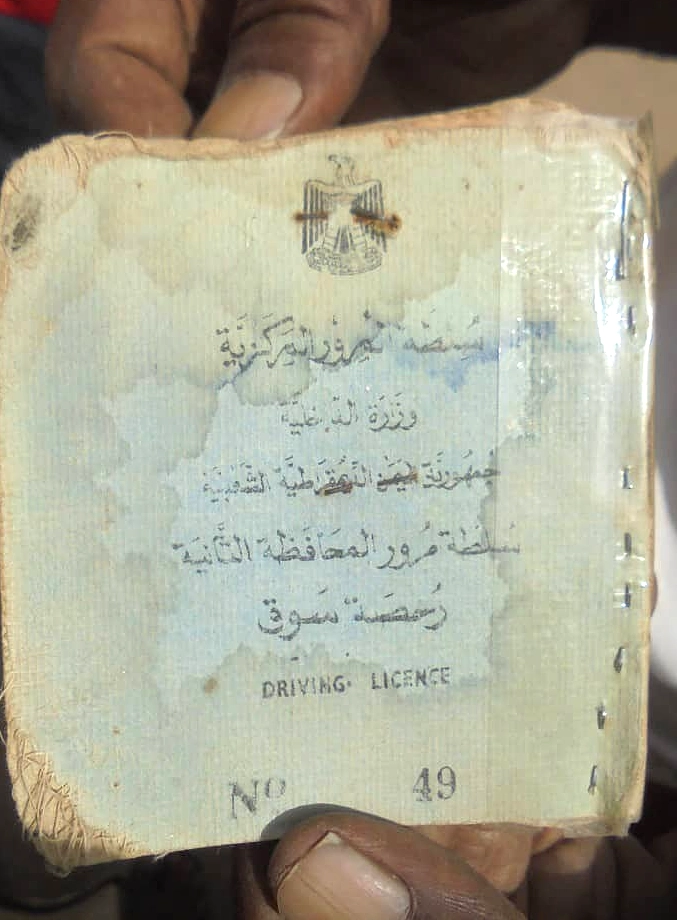 سُلطَة المُرور المَركَزيَّة
وزَارَة الدَّاخليَّة
جُمهُوريَّة اليَمَن الدِّيمُقراطيَّة الشَّعبيَّة
سُلطَة مُرور المحَافَظة الثَّانيَة
رُخصَة سَوق
DRIVING LICENCE
Nº 49